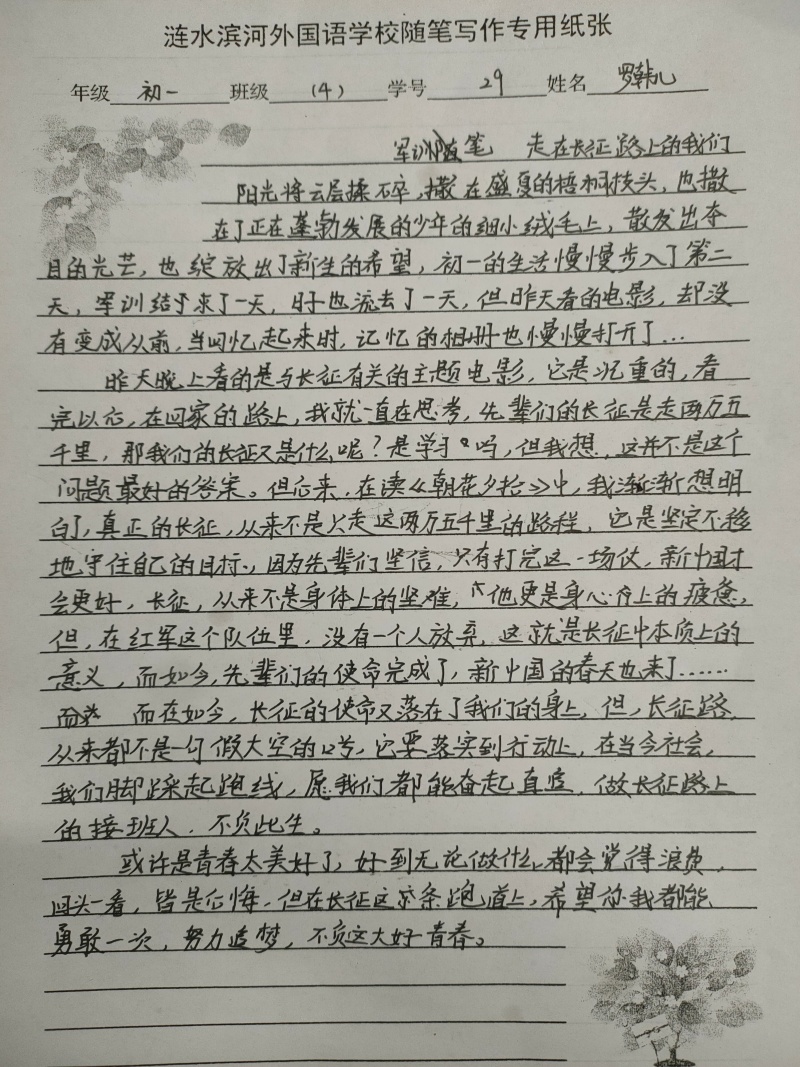 涟水滨河外国语学校随笔写作专用纸张
年级 初一 班级 (4) 学号 29 姓名 罗韩儿
军训随笔 走在长征路上的我们
阳光将云层揉碎，撒在盛夏的梧桐枝头，也撒
在了正在蓬勃发展的少年的细小绒毛上，散发出夺
目的光芒，也绽放出了新生的希望，初一的生活慢慢步入了第二
天，军训结束了一天，日子也流去了一天，但昨天看的电影，却没
有变成从前，当回忆起来时，记忆的相册也慢慢打开了…
昨天晚上看的是与长征有关的主题电影，它是沉重的，看
完以后，在回家的路上，我就一直在思考，先辈们的长征是走两万五
千里，那我们的长征又是什么呢？是学习吗，但我想，这并不是这个
问题最好的答案。但后来，在读《朝花夕拾》中，我渐渐想明
白了，真正的长征，从来不是只走这两万五千里的路程，它是坚定不移
地守住自己的目标、因为先辈们坚信，只有打完这一场仗，新中国才
会更好，长征，从来不是身体上的坚难，他更是身心行上的疲惫，
但，在红军这个队伍里，没有一个人放弃，这就是长征中本质上的
意义，而如今，先辈们的使命完成了，新中国的春天也来了……
而在如今，长征的使命又落在了我们的身上，但，长征路，
从来都不是一句假大空的口号，它要落实到行动上，在当今社会，
我们脚踩起跑线，愿我们都能奋起直追，做长征路上
的接班人，不负此生。
或许是青春太美好了，好到无论做什么都会觉得浪费，
回头一看，皆是后悔，但在长征这条跑道上，希望你我都能
勇敢一次，努力追梦，不负这大好青春。